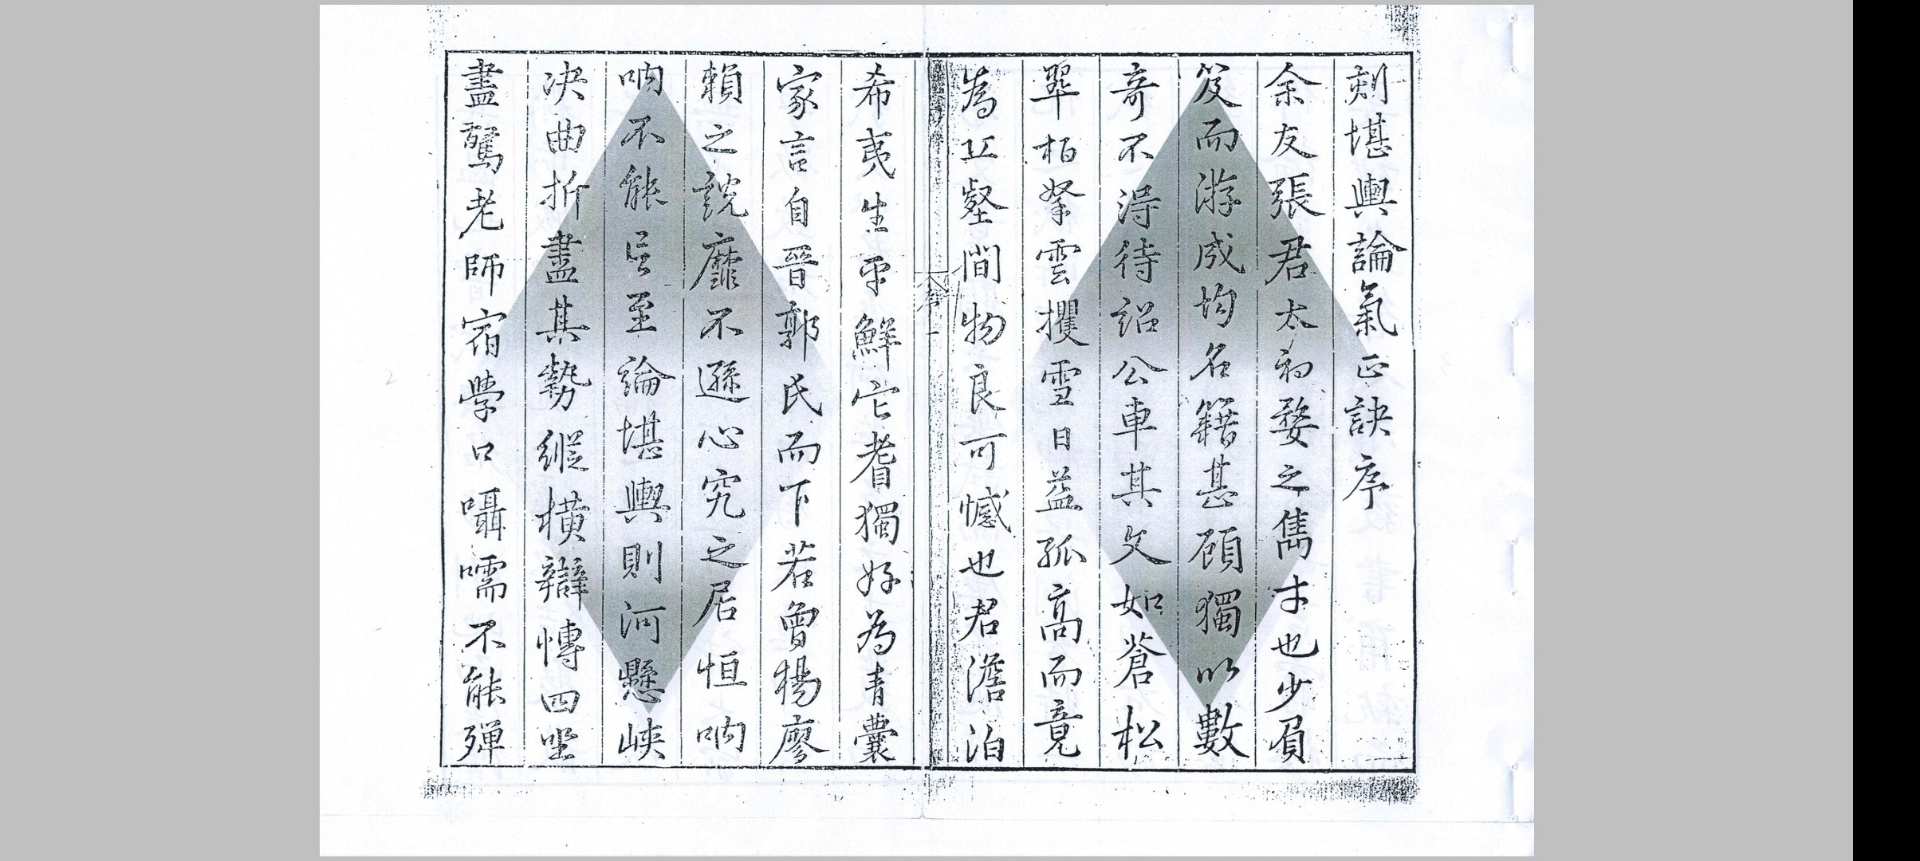 刻堪輿論氣正訣序
余友張君太初婺之雋才也少負
笈而游成均名籍甚顧獨以數
奇不得待詔公車其文如蒼松
翠柏拏雲攫雪日益孤高而竟
為丘壑間物良可憾也君澹泊
希夷生平鮮它耆獨好為青囊
家言自晉郭氏而下若曾楊廖
賴之說靡不遜心究之居恒吶
吶不能言至論堪輿則河懸峽
決曲折盡其勢縱橫辯慱四坐
盡驚老師宿學口囁嚅不能殫